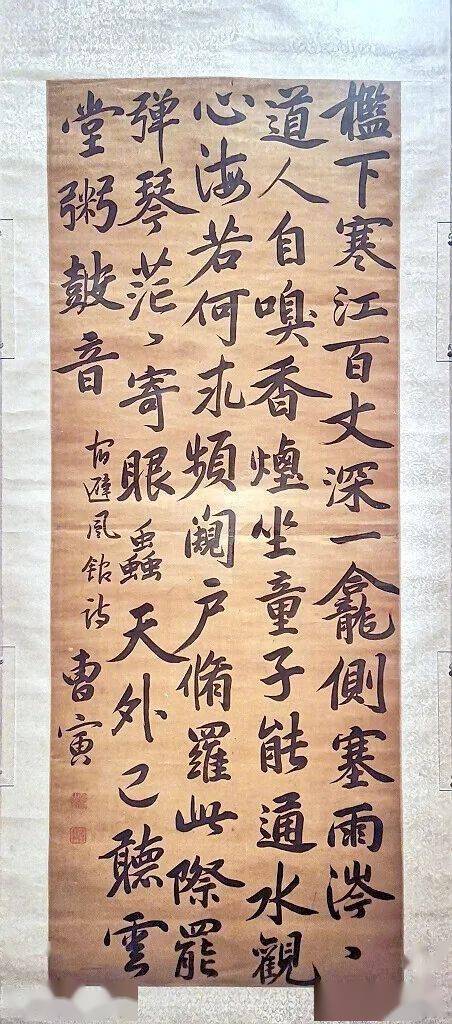 檻下寒江百丈深一龕側塞雨涔、
道人自嗅香煙坐童子能通水觀
心海若何求頻闚戶脩羅此際罷
弹琴茫、寄眼蟲天外已聽雲
堂粥鼓音
宿避風館詩 曹寅